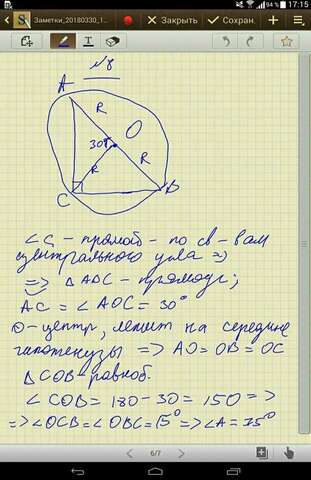 17:15
94 %
Заметки_20180330_1...
Закрыть
Сохран.
T
№8
A
R
O
30°
R
R
C
B
∠C - прямоб - по св-вам
центрального угла =>
=> △ABC - прямоуг;
AC = ∠AOC = 30°
O-центр, лежит на середине
гипотенузы => AO = OB = OC
△COB - равноб.
∠COB = 180 - 30 = 150 =>
=> ∠OCB = ∠OBC = 15° => ∠A = 75°
6/7